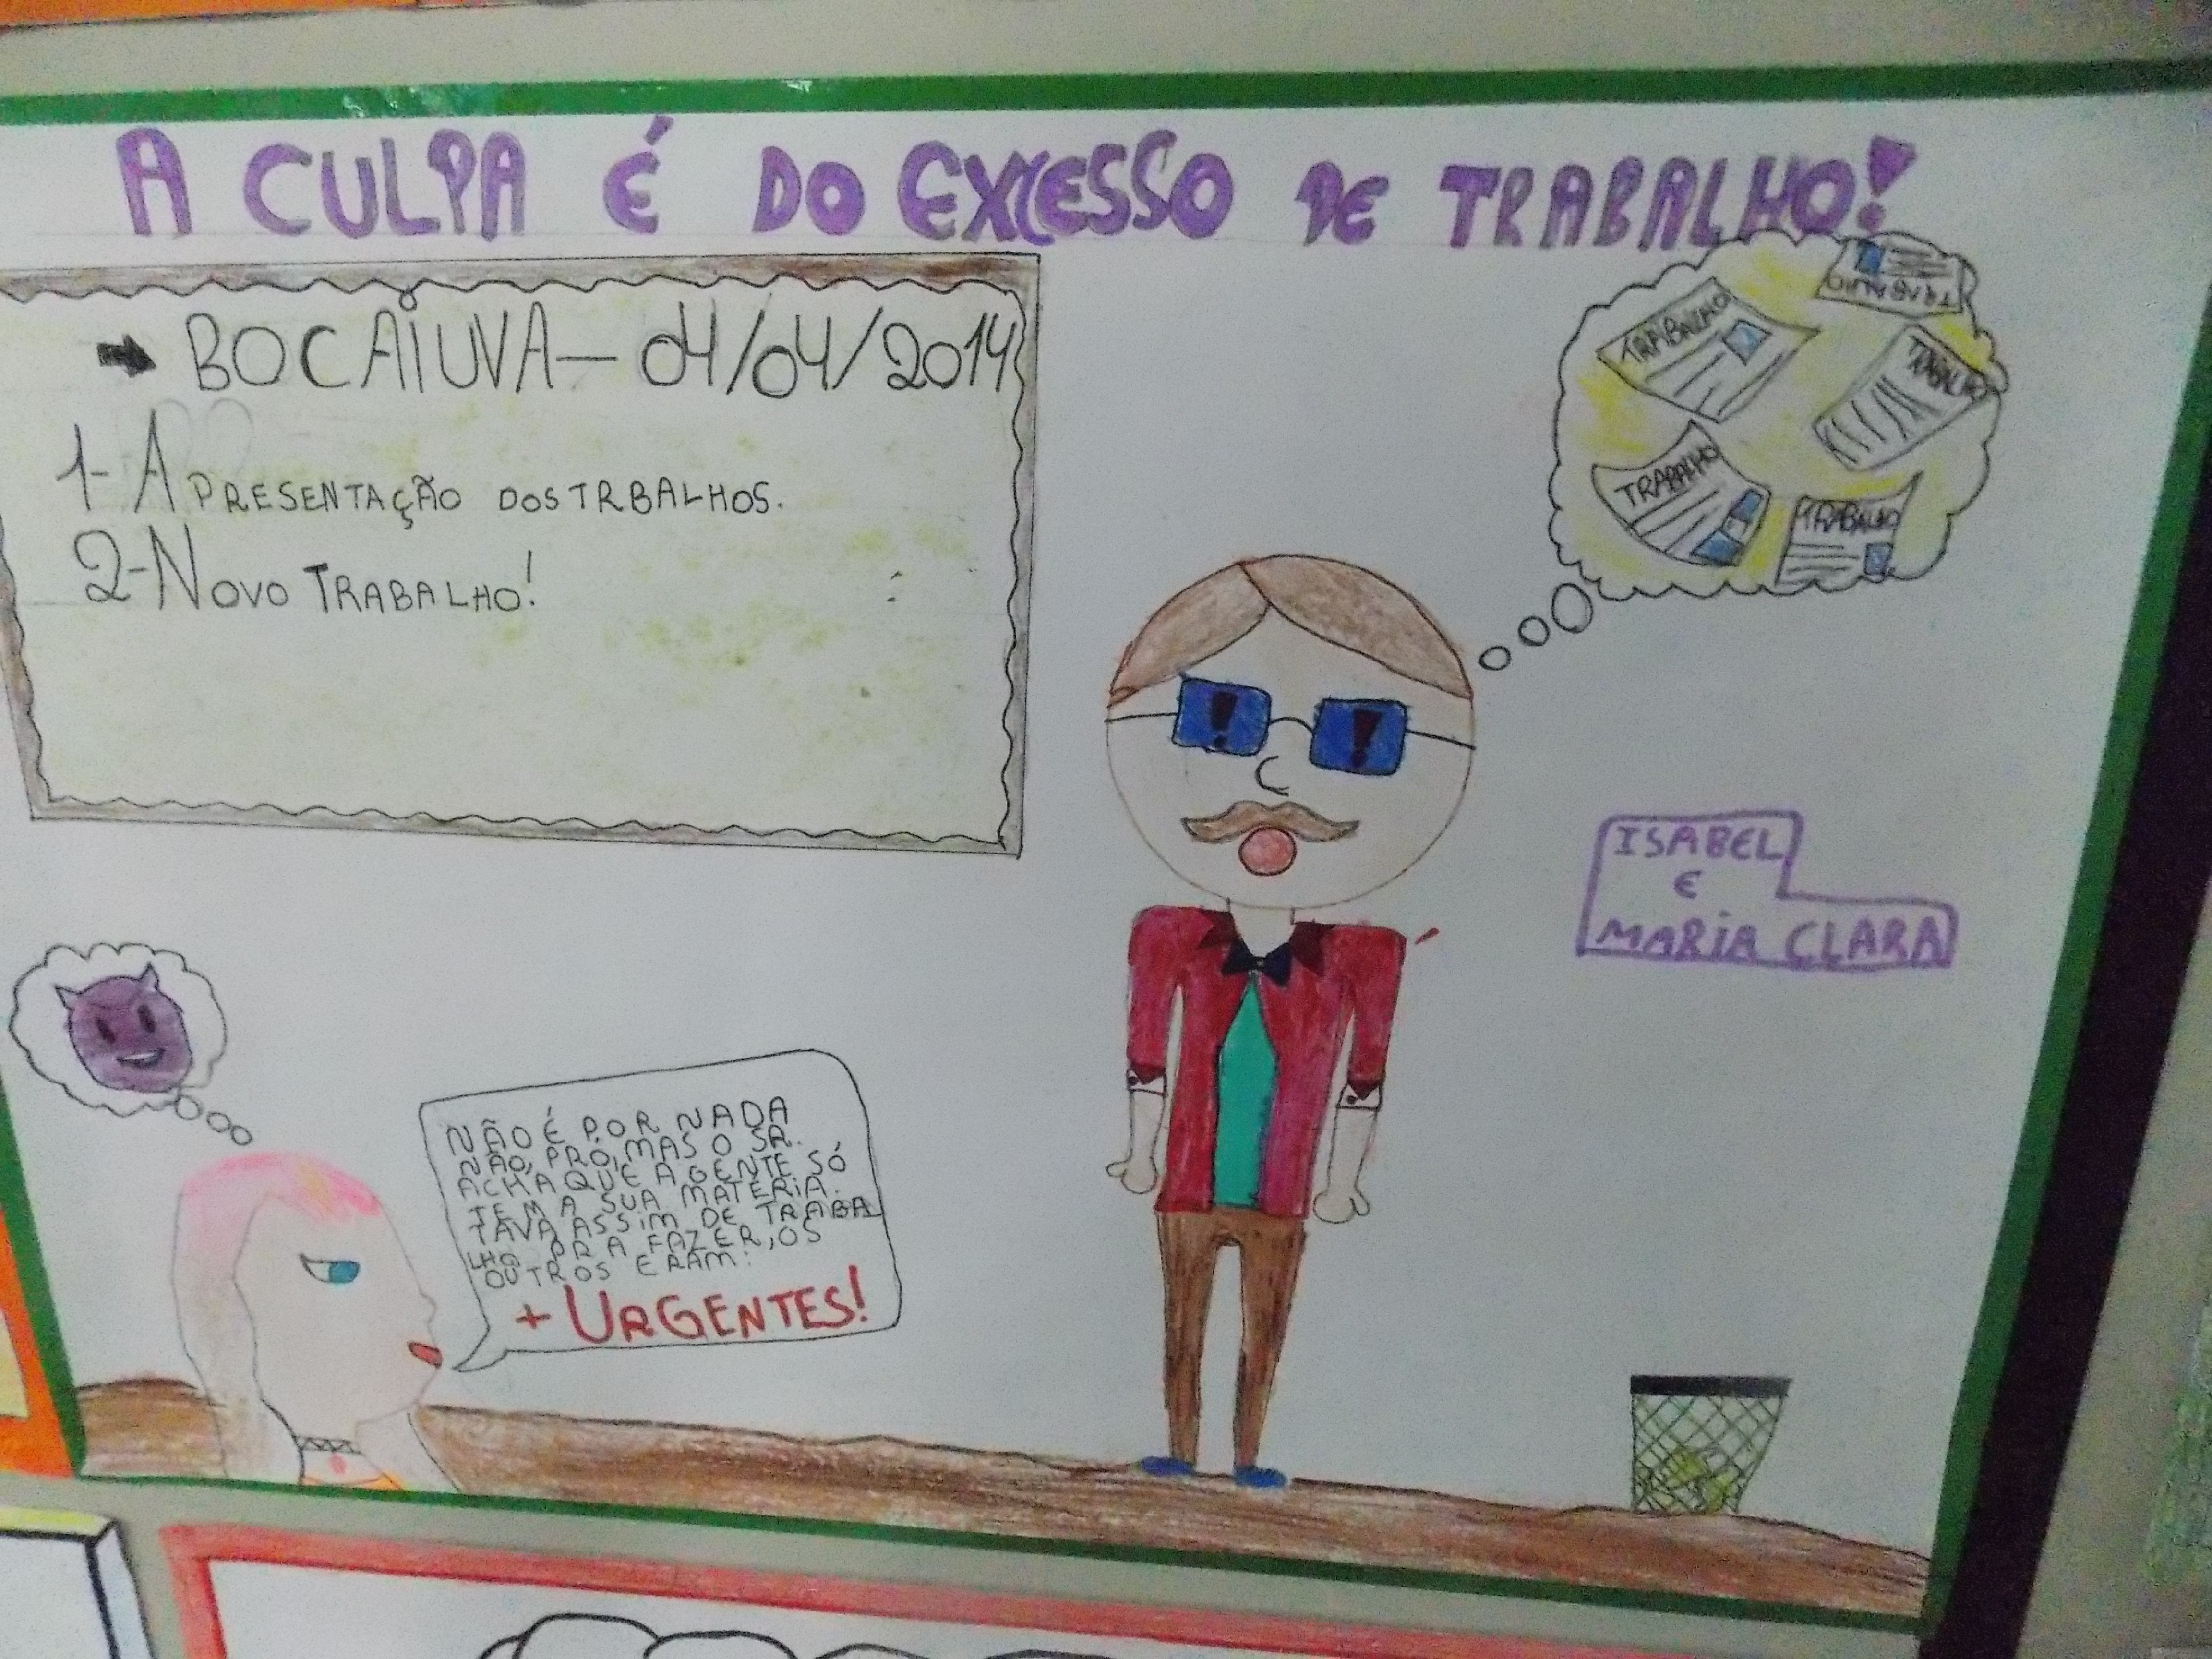 A CULPA É DO EXCESSO DE TRABALHO!
BOCAIUVA — 04/04/2014
1- APRESENTAÇÃO DOS TRBALHOS.
2- NOVO TRABALHO!
TRABALHO
TRABALHO
TRABALHO
TRABALHO
TRABALHO
ISABEL
E
MARIA CLARA
NÃO É POR NADA
NÃO, PRÔ, MAS O SR.
ACHA QUE A GENTE SÓ
TEM A SUA MATÉRIA.
TAVA ASSIM DE TRABA
LHO PRA FAZER, OS
OUTROS ERAM:
+ URGENTES!